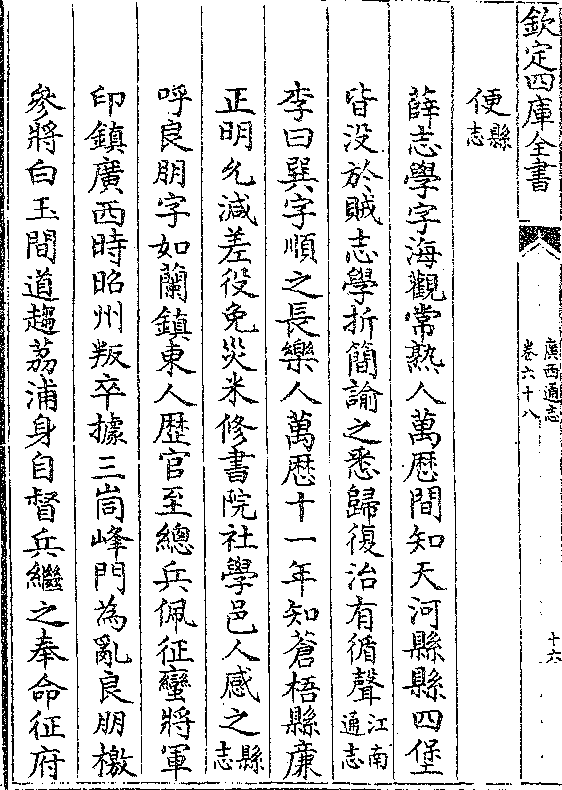 欽定四庫全書
廣西通志
卷六十八
十六
便縣志
薛志學字海觀常熟人萬厯間知天河縣縣四堡
皆没於賊志學折簡諭之悉歸復治有循聲江南通志
李曰巽字順之長樂人萬厯十一年知蒼梧縣亷
正明允減差役免災米修書院社學邑人感之縣志
呼良朋字如蘭鎮東人歴官至總兵佩征蠻將軍
印鎮廣西時昭州叛卒據三峝峰門為亂良朋檄
參將白玉間道趨荔浦身自督兵繼之奉命征府